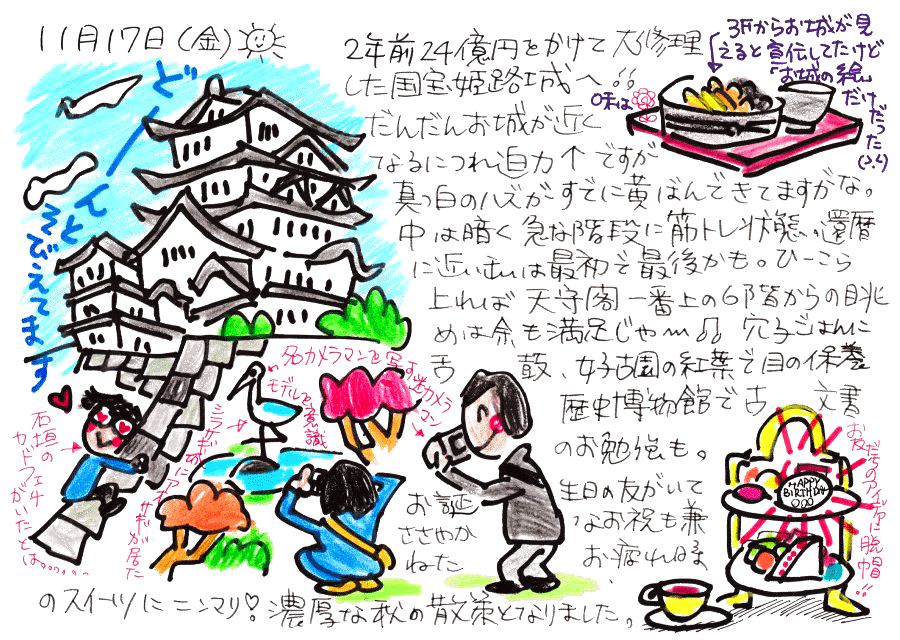 11月17日(金)
2年前24億円をかけて大修理
した国宝姫路城へ!!
だんだんお城が近く
なるにつれ迫力↑ですが
真っ白のハズがすでに黄ばんできてますがな。
中は暗く急な階段に筋トレ状態。還暦
に近い私は最初で最後かも。ひーこら
上れば天守閣一番上の6階からの眺
めは余も満足じゃ〜♫ 穴子ごはんに
舌鼓、好古園の紅葉で目の保養
歴史博物館で古文書
のお勉強も。
お誕生日の友がいて
ささやかなお祝も兼
ねたお疲れ様
のスイーツにニンマリ♡濃厚な秋の散策となりました。
どーーんと
そびえてます
3Fからお城が見
えると宣伝してたけど
「お城の絵」
だけ
だった
(>.<)
味は
名カメラマンを写す迷カメラ
マン
モデルを意識
シラサギ城にアオサギが居た
石垣の
カドフェチ
がいたとは……
お友だちのアイデアに脱帽!!
HAPPY
BIRTHDAY